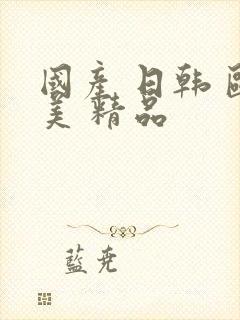 國產日韓國
美精品
藍堯